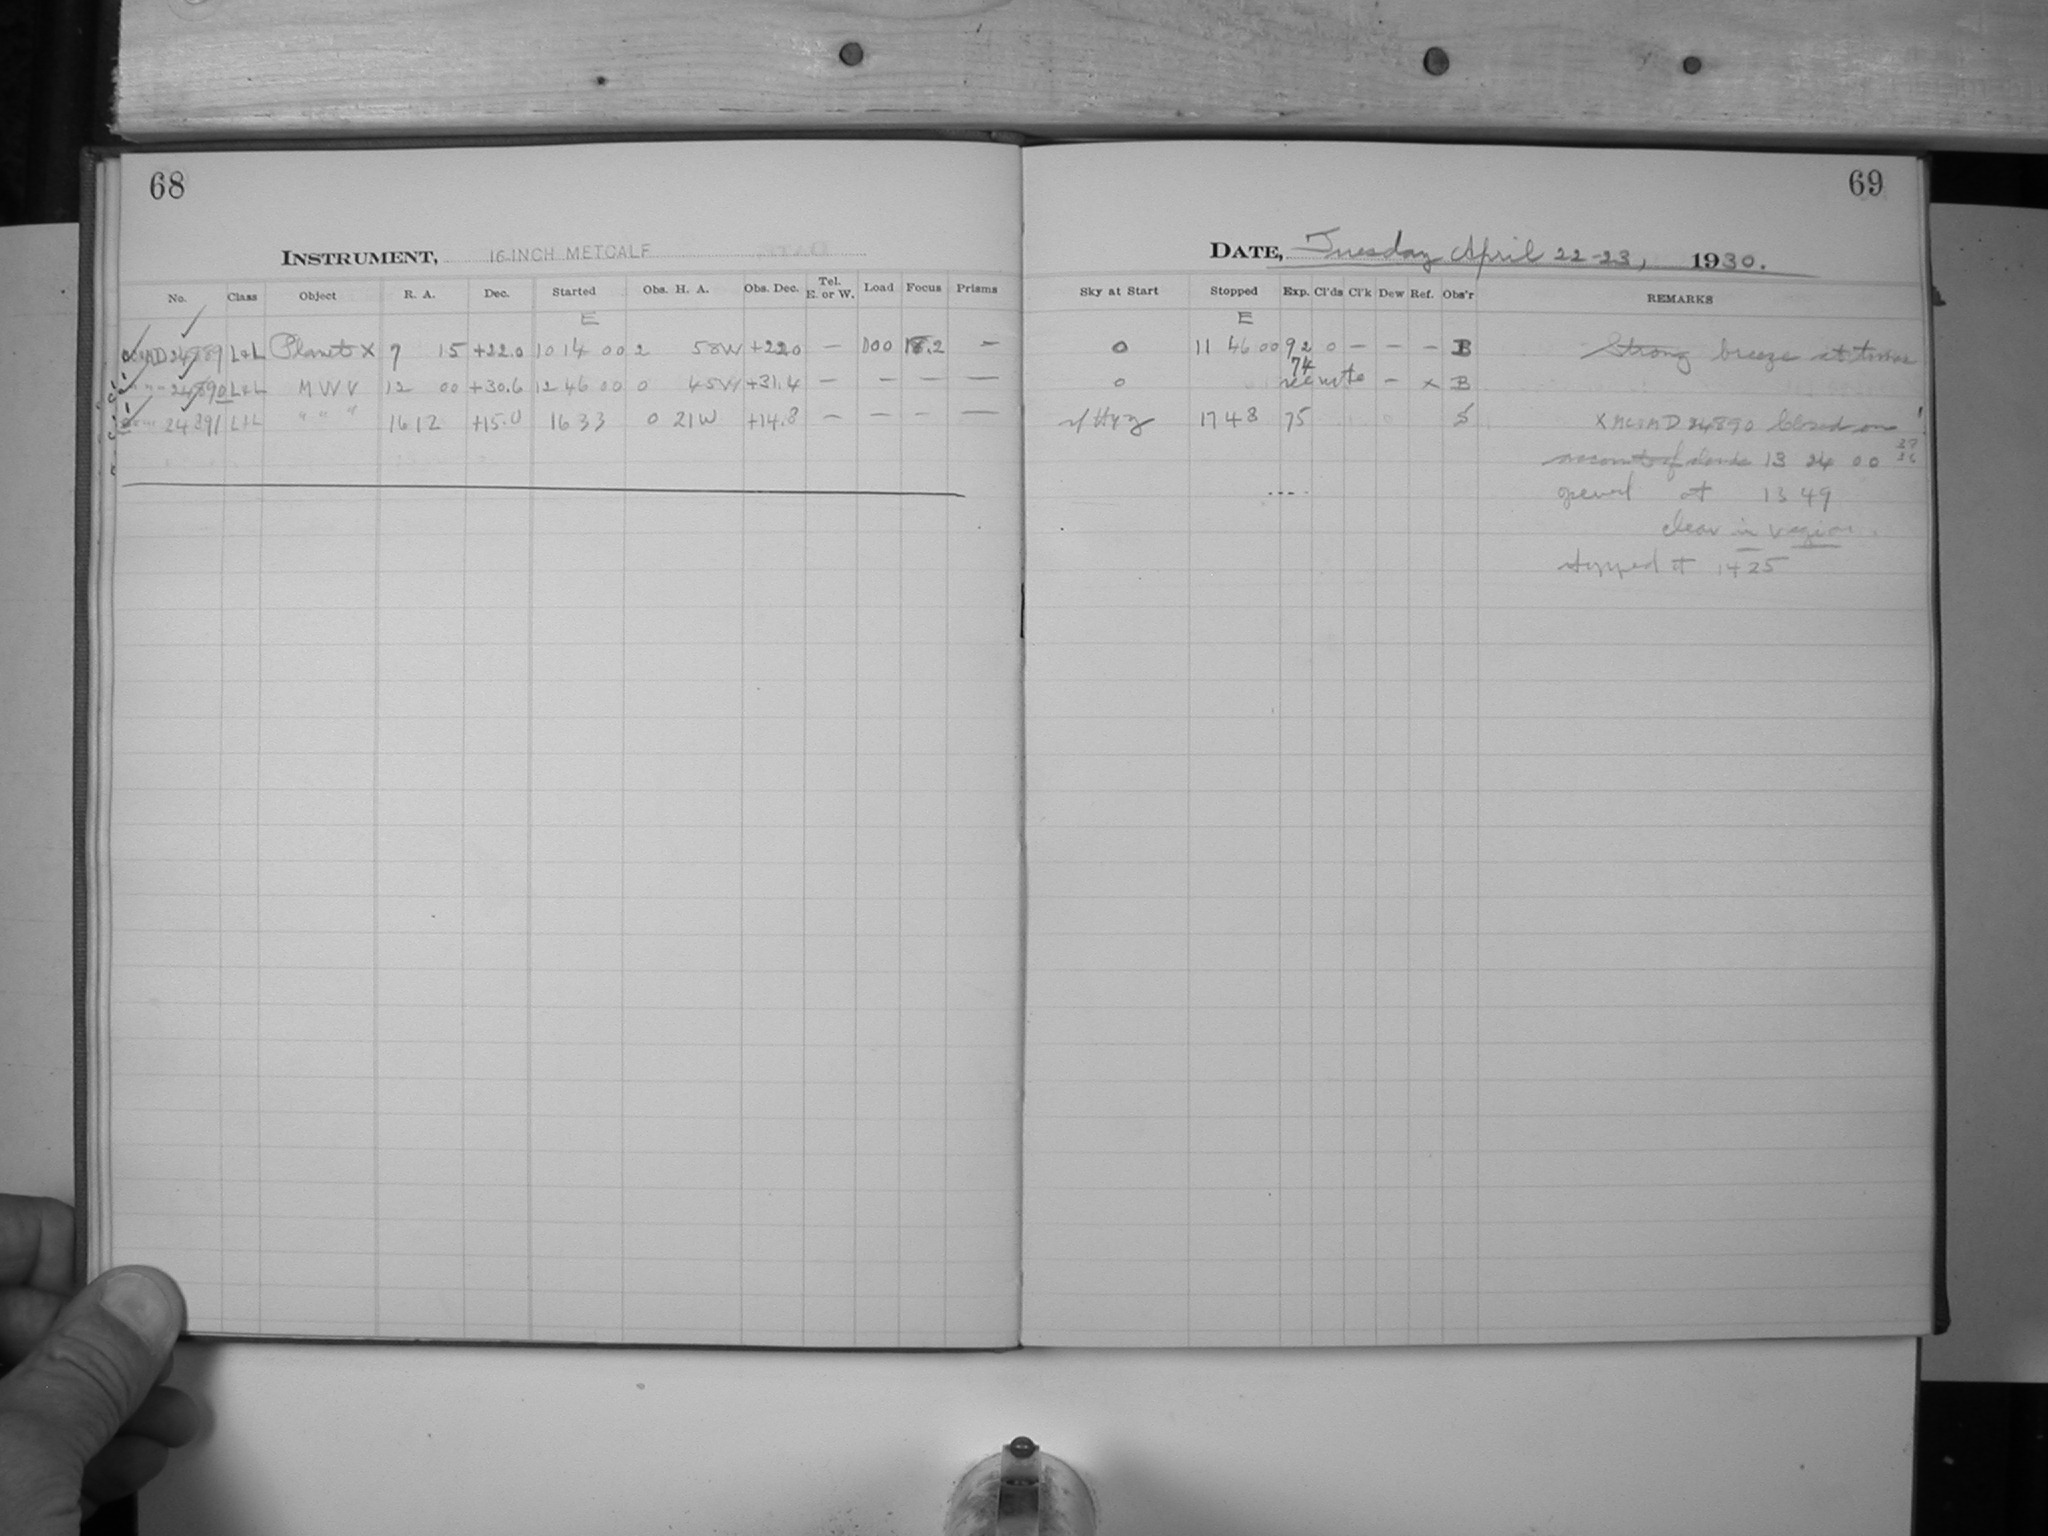 68
INSTRUMENT, 16-INCH METCALF
No. Class Object R. A. Dec. Started Obs. H. A. Obs. Dec. Tel. E. or W. Load Focus Prisms
E
24889 L+L Planet X 7 15 +22.0 10 14 00 2 58W +22.0 — 100 18.2 —
" " " 24890 L+L M W V 12 00 +30.6 12 46 00 0 45W +31.4 — — — —
24891 L+L " " " 16 12 +15.0 16 33 0 21W +14.8 — — — —
69
DATE, Tuesday April 22-23, 1930.
Sky at Start Stopped Exp. Cl'ds Cl'k Dew Ref. Obs'r REMARKS
E
0 11 46 00 92 0 — — — B Strong breeze at times
74
0 see note — x B
17 48 75 S X 24890 Closed on
account of clouds 13 24 00
opened at 13 49
clear in region.
stopped at 14 25